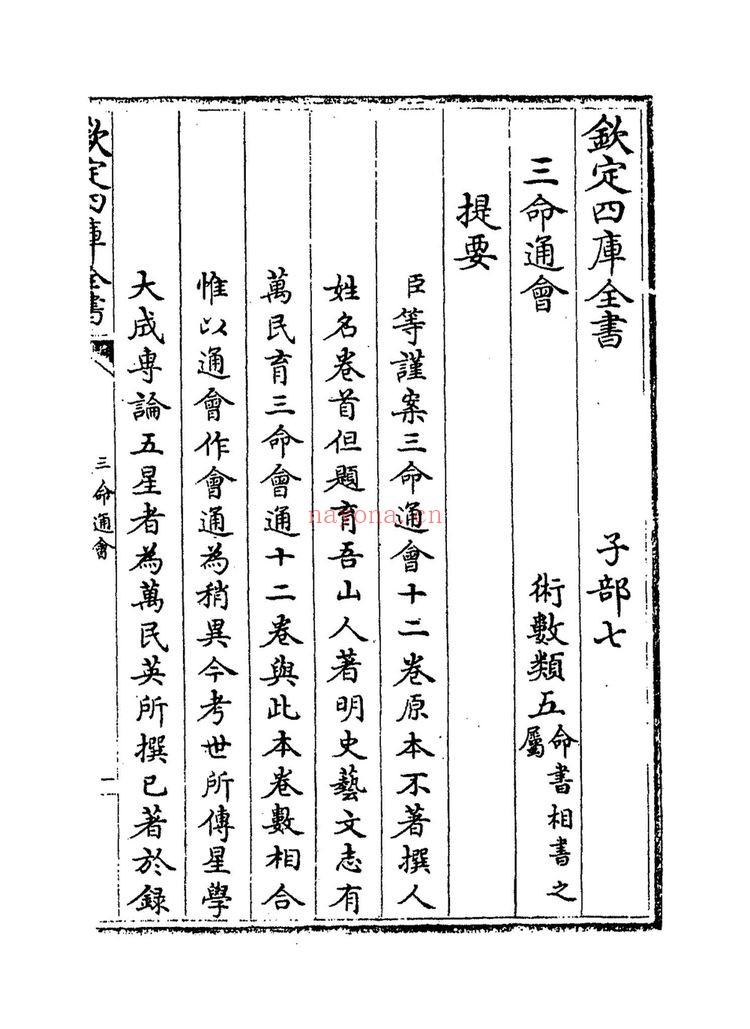 欽定四庫全書 子部七
三命通會 術數類五命書相書之屬
提要
臣等謹案三命通會十二卷原本不著撰人
姓名卷首但題育吾山人著明史藝文志有
萬民育三命會通十二卷與此本卷數相合
惟以通會作會通為稍異今考世所傳星學
大成專論五星者為萬民英所撰已著於録
欽定四庫全書 三命通會 一
nayona.cn